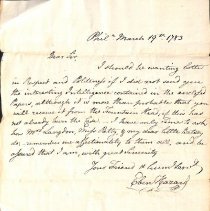 Phila March 19th 1783
Dear Sir
I should be wanting both
in Respect and Politeness if I did not send you
the interesting Intelligence contained in the enclosed
Papers, although it is more than probable that you
will receive it from the Fountain Head, if this has
not already been the Case. I have only time to ask
how Mrs Langdon, Miss Betsy, & my dear little Betsey
do, remember me affectionately to them all, and be
assured that I am, with great sincerity
Your Friend & humble Servt,
Eben Hazard